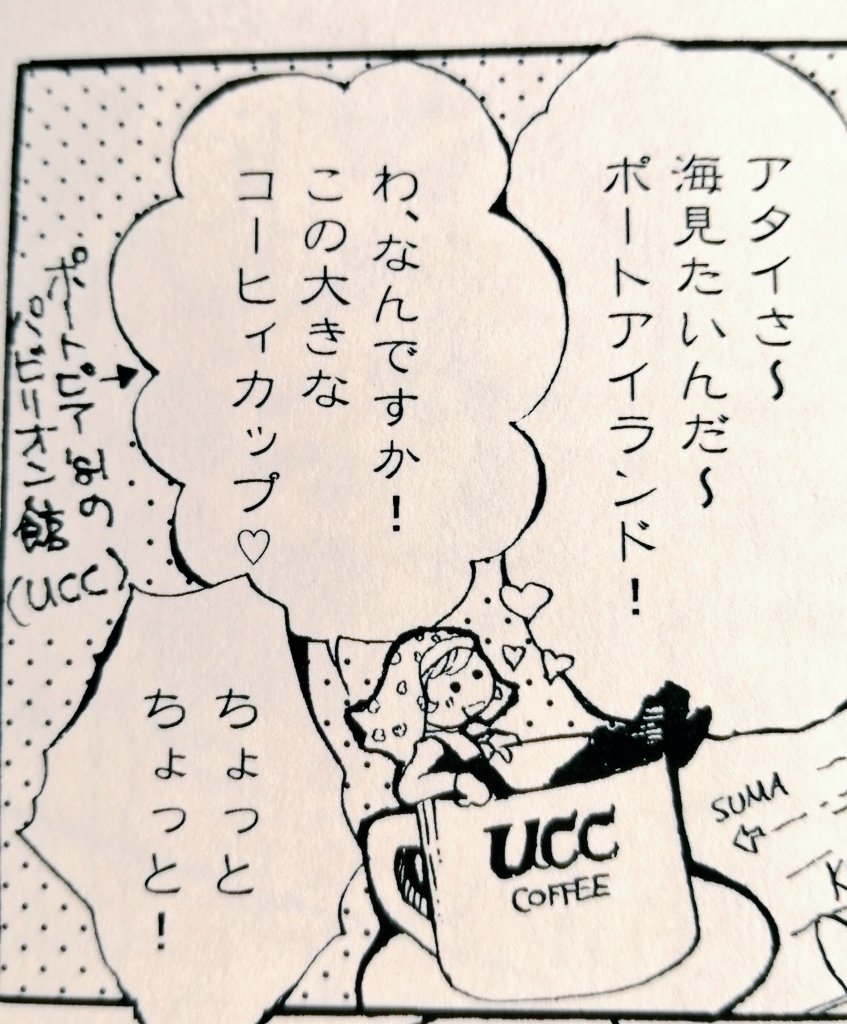 アタイさ～
海見たいんだ～
ポートアイランド！
わ、なんですか！
この大きな
コーヒィカップ♡
ポートピア'81の
パビリオン館
(UCC)
ちょっと
ちょっと！
UCC
COFFEE
SUMA
K